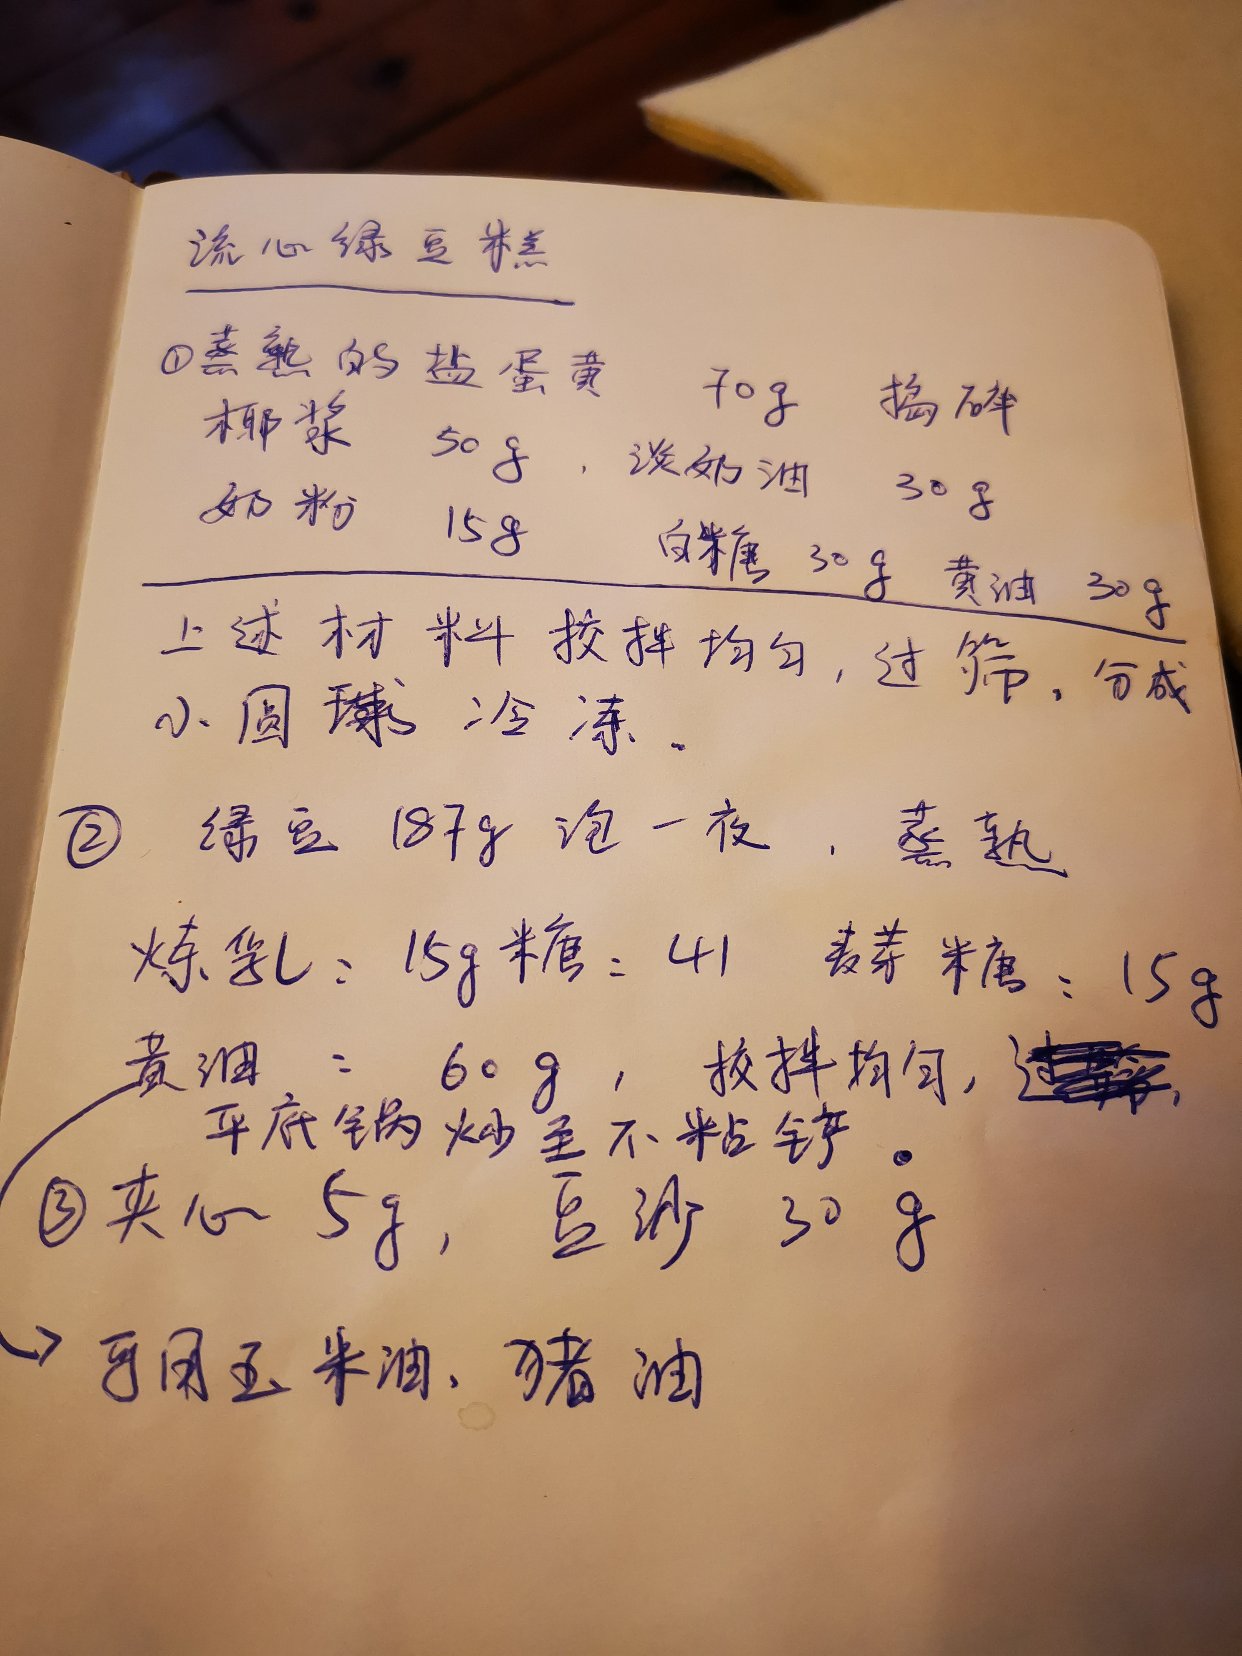 流心绿豆糕
①蒸熟的盐蛋黄 70g 捣碎
椰浆 50g, 淡奶油 30g
奶粉 15g 白糖 30g 黄油 30g
上述材料搅拌均匀,过筛。分成
小圆球冷冻。
② 绿豆 187g 泡一夜,蒸熟
炼乳:15g 糖:41 麦芽糖:15g
黄油: 60g, 搅拌均匀,
平底锅炒至不粘铲。
③夹心 5g, 豆沙 30g
→ 可用玉米油、猪油